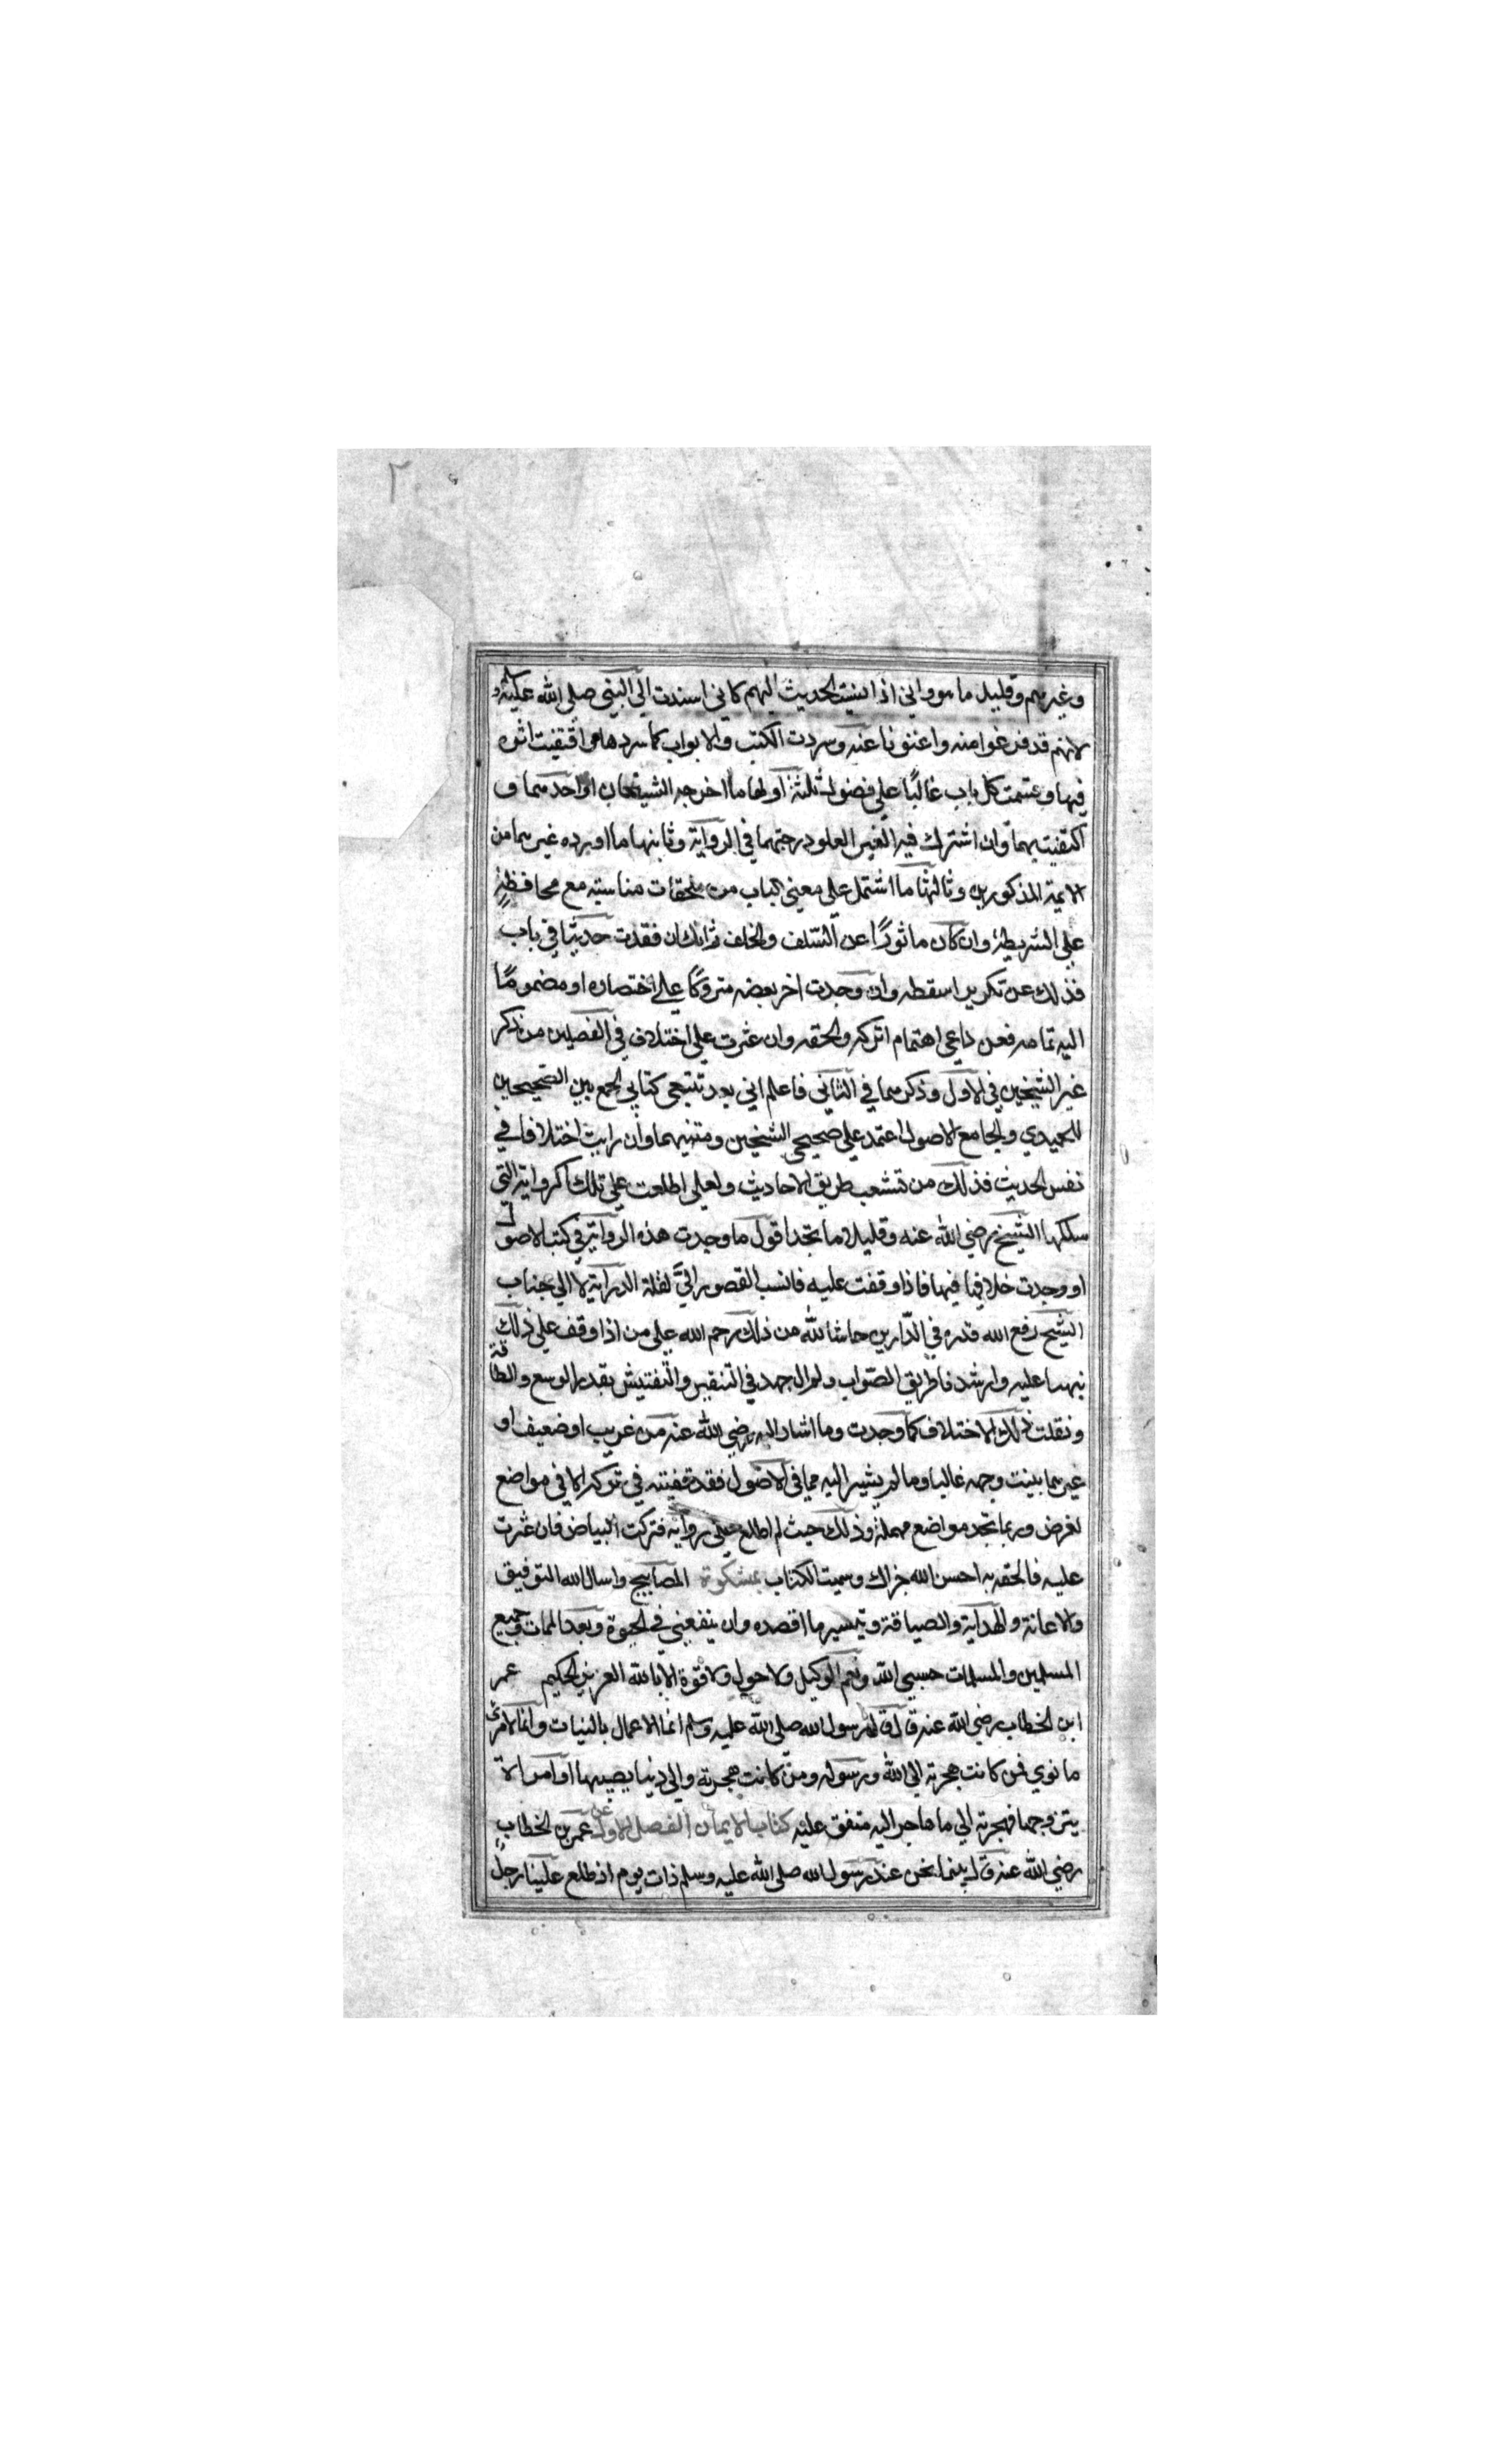 ٢
وغيرهم وقليل ما هو واني اذا نسبت الحديث اليهم كاني اسندت الى النبي صلى الله عليه
لانهم قد فرغوا منه واغنونا عنه وسردت الكتب والابواب كما سردها واقتفيت اثره
فيها وقسمت كل باب غالبًا على فصول ثلثة اولها ما اخرجه الشيخان او احدهما و
اكتفيت بهما وان اشترك فيه الغير لعلو درجتهما في الرواية وثانيها ما اورده غيرهما من
الايمة المذكورين وثالثها ما اشتمل على معنى الباب من ملحقات مناسبة مع محافظة
على الشريطة وان كان ماثورًا عن السلف والخلف ثم انك ان فقدت حديثا في باب
فذلك عن تكرير اسقطه وان وجدت اخر بعضه متروكًا على اختصاره او مضمومًا
اليه تمامه فعن داعي اهتمام اتركه والحقه وان عثرت على اختلاف في الفصلين من ذكر
غير الشيخين في الاول وذكرهما في الثاني فاعلم اني بعد تتبعي كتابي الجمع بين الصحيحين
للحميدي والجامع الاصول اعتمد على صحيحي الشيخين ومتنيهما وان رايت اختلافا في
نفس الحديث فذلك من تشعب طريق الاحاديث ولعلي اطلعت على تلك الرواية التي
سلكها الشيخ رضي الله عنه وقليلا ما تجد اقول ما وجدت هذه الرواية في كتب الاصول
او وجدت خلافها فيها فاذا وقفت عليه فانسب القصور اليَّ لقلة الدراية لا الى جناب
الشيخ رفع الله قدره في الدّارين حاشا لله من ذلك رحم الله على من اذا وقف على ذلك
نبهنا عليه وارشدنا طريق الصّواب ولم ال جهد في التنقير والتفتيش بقدر الوسع والطاقة
ونقلت ذلك الاختلاف كما وجدت وما اشار اليه رضي الله عنه من غريب او ضعيف او
غيرهما بينت وجهه غالبا وما لم يشير اليه مما في الاصول فقد قفيته في تركه الا في مواضع
لغرض وربما تجد مواضع مهملة وذلك حيث لم اطلع على رواية فتركت البياض فان عثرت
عليه فالحقه به احسن الله جزاك وسميت الكتاب بمشكوة المصابيح واسال الله التوفيق
والاعانة والهداية والصيانة وتيسير ما اقصده وان ينفعني في الحيوة وبعد الممات وجميع
المسلمين والمسلمات حسبي الله ونعم الوكيل ولا حول ولا قوة الا بالله العزيز الحكيم عمر
ابن الخطاب رضي الله عنه قال قال رسول الله صلى الله عليه وسلم انما الاعمال بالنيات وانما لامرئ
ما نوى فمن كانت هجرته الى الله ورسوله ومن كانت هجرته والى دنيا يصيبها او امراة
يتزوجها فهجرته الى ما هاجر اليه متفق عليه كتاب الايمان الفصل الاول عن عمر بن الخطاب
رضي الله عنه قال بينما نحن عند رسول الله صلى الله عليه وسلم ذات يوم اذ طلع علينا رجل